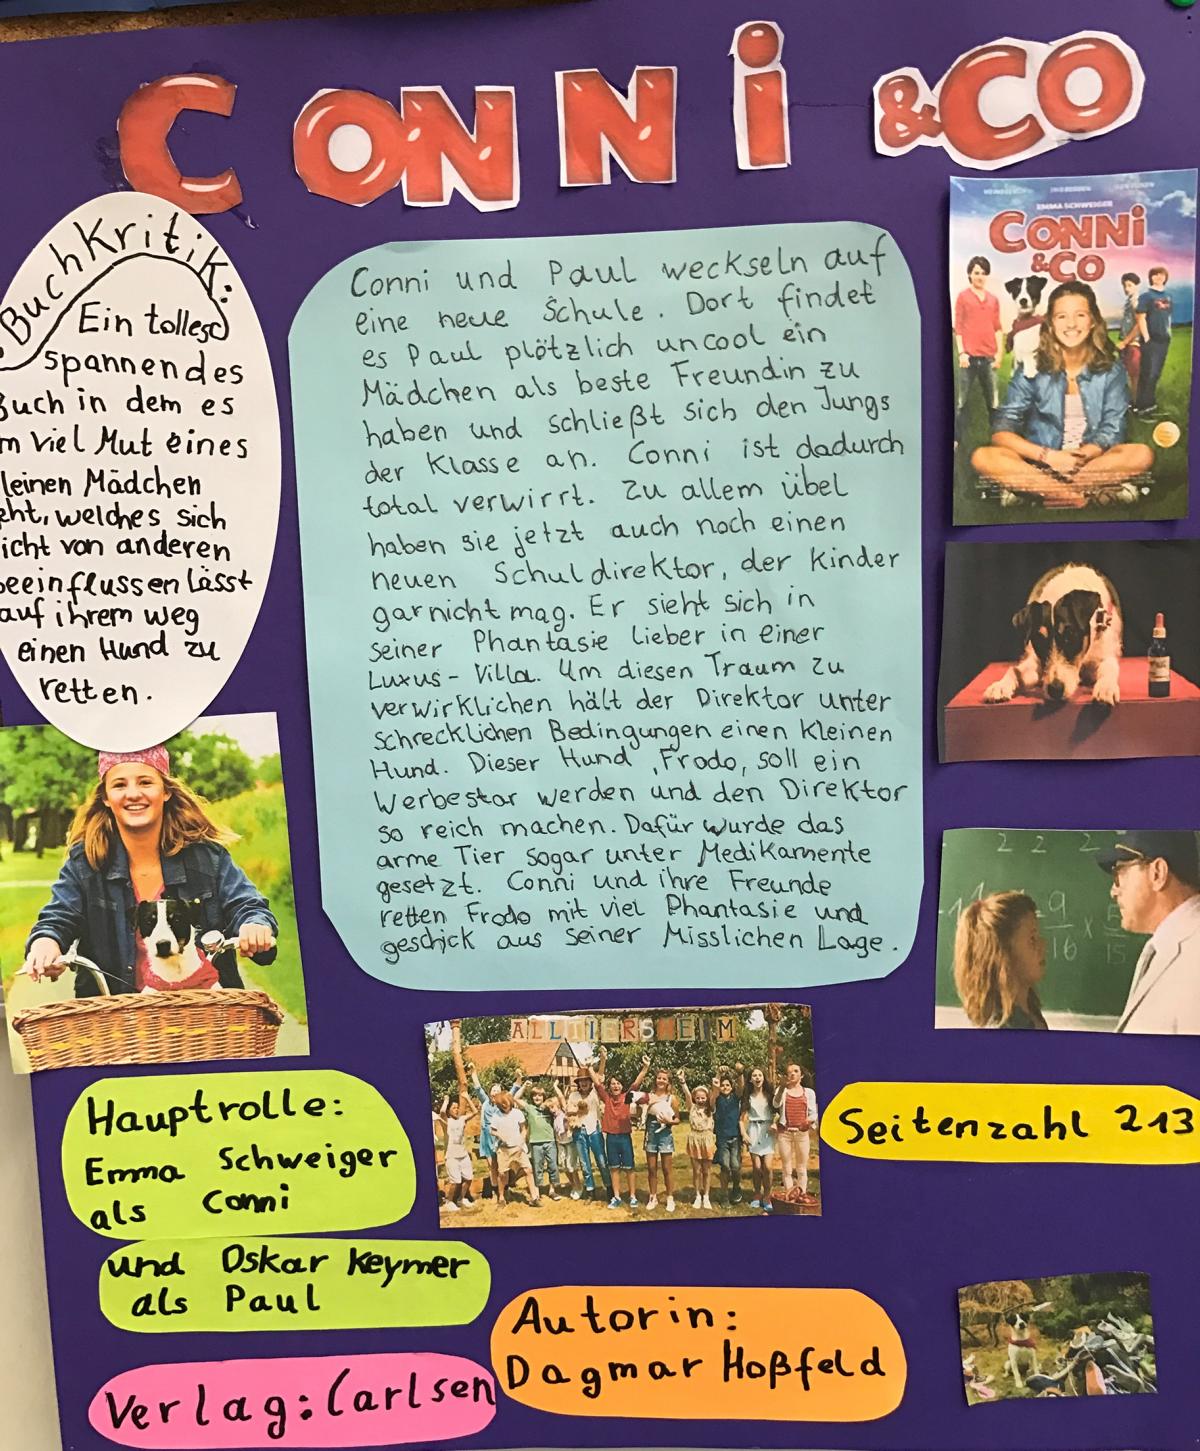 CONNi &CO
Buchkritik:
Ein tolles
spannendes
Buch in dem es
m viel Mut eines
leinen Mädchen
eht, welches sich
icht von anderen
beeinflussen lässt
auf ihrem weg
einen Hund zu
retten.
Conni und Paul weckseln auf
eine neue Schule. Dort findet
es Paul plötzlich uncool ein
Mädchen als beste Freundin zu
haben und schließt sich den Jungs
der Klasse an. Conni ist dadurch
total verwirrt. Zu allem übel
haben sie jetzt auch noch einen
neuen Schuldirektor, der Kinder
garnicht mag. Er sieht sich in
seiner Phantasie lieber in einer
Luxus-Villa. Um diesen Traum zu
verwirklichen hält der Direktor unter
schrecklichen Bedingungen einen kleinen
Hund. Dieser Hund ,Frodo, soll ein
Werbestar werden und den Direktor
so reich machen. Dafür wurde das
arme Tier sogar unter Medikamente
gesetzt. Conni und ihre Freunde
retten Frodo mit viel Phantasie und
geschick aus seiner Misslichen Lage.
EMMA SCHWEIGER
CONNi
&CO
2 2 2
9
16
x
15
ALLTIERSHEIM
Hauptrolle:
Emma Schweiger
als Conni
und Oskar Keymer
als Paul
Seitenzahl 213
Autorin:
Dagmar Hoßfeld
Verlag: Carlsen